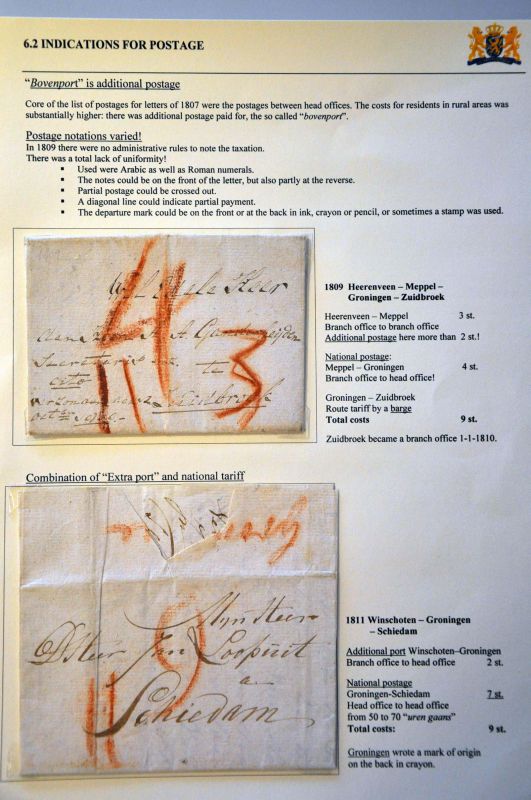 6.2 INDICATIONS FOR POSTAGE
“Bovenport” is additional postage
Core of the list of postages for letters of 1807 were the postages between head offices. The costs for residents in rural areas was
substantially higher: there was additional postage paid for, the so called “bovenport”.
Postage notations varied!
In 1809 there were no administrative rules to note the taxation.
There was a total lack of uniformity!
▪ Used were Arabic as well as Roman numerals.
▪ The notes could be on the front of the letter, but also partly at the reverse.
▪ Partial postage could be crossed out.
▪ A diagonal line could indicate partial payment.
▪ The departure mark could be on the front or at the back in ink, crayon or pencil, or sometimes a stamp was used.
Wel Edele Heer
4
3
te
Zuidbroek
1809 Heerenveen – Meppel –
Groningen – Zuidbroek
Heerenveen – Meppel 3 st.
Branch office to branch office
Additional postage here more than 2 st.!
National postage:
Meppel – Groningen 4 st.
Branch office to head office!
Groningen – Zuidbroek
Route tariff by a barge
Total costs 9 st.
Zuidbroek became a branch office 1-1-1810.
Combination of “Extra port” and national tariff
9
Mijn Heer
D'Heer Jan Loopuit
a
Schiedam
1811 Winschoten – Groningen
– Schiedam
Additional port Winschoten–Groningen
Branch office to head office 2 st.
National postage
Groningen-Schiedam 7 st.
Head office to head office
from 50 to 70 “uren gaans”
Total costs: 9 st.
Groningen wrote a mark of origin
on the back in crayon.